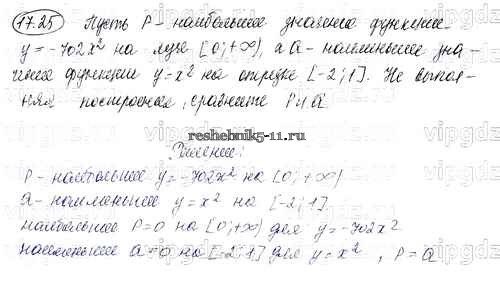 17.25 Пусть P - наибольшее значение функции
y = -702x² на луче [0; +∞), а Q - наименьшее зна-
чение функции y = x² на отрезке [-2; 1]. Не выпол-
няя построения, сравните P и Q
reshebnik5-11.ru
Решение:
P - наибольшее y = -702x² на [0; +∞)
Q - наименьшее y = x² на [-2; 1]
наибольшее P = 0 на [0; +∞) для y = -702x²
наименьшее Q = 0 на [-2; 1] для y = x², P = Q